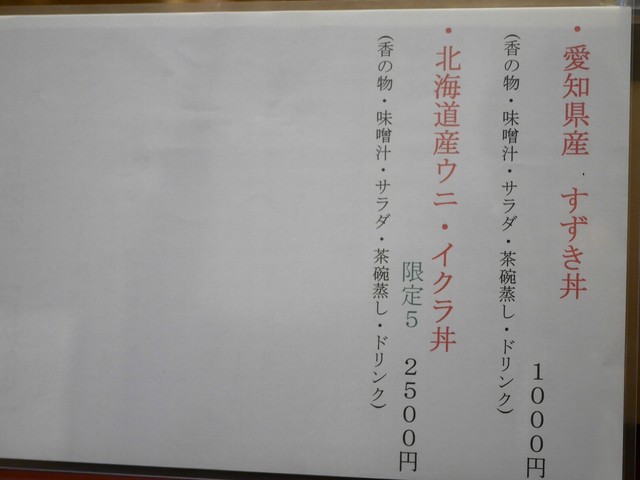 ・愛知県産 すずき丼
1000円
(香の物・味噌汁・サラダ・茶碗蒸し・ドリンク)
・北海道産ウニ・イクラ丼
限定5 2500円
(香の物・味噌汁・サラダ・茶碗蒸し・ドリンク)